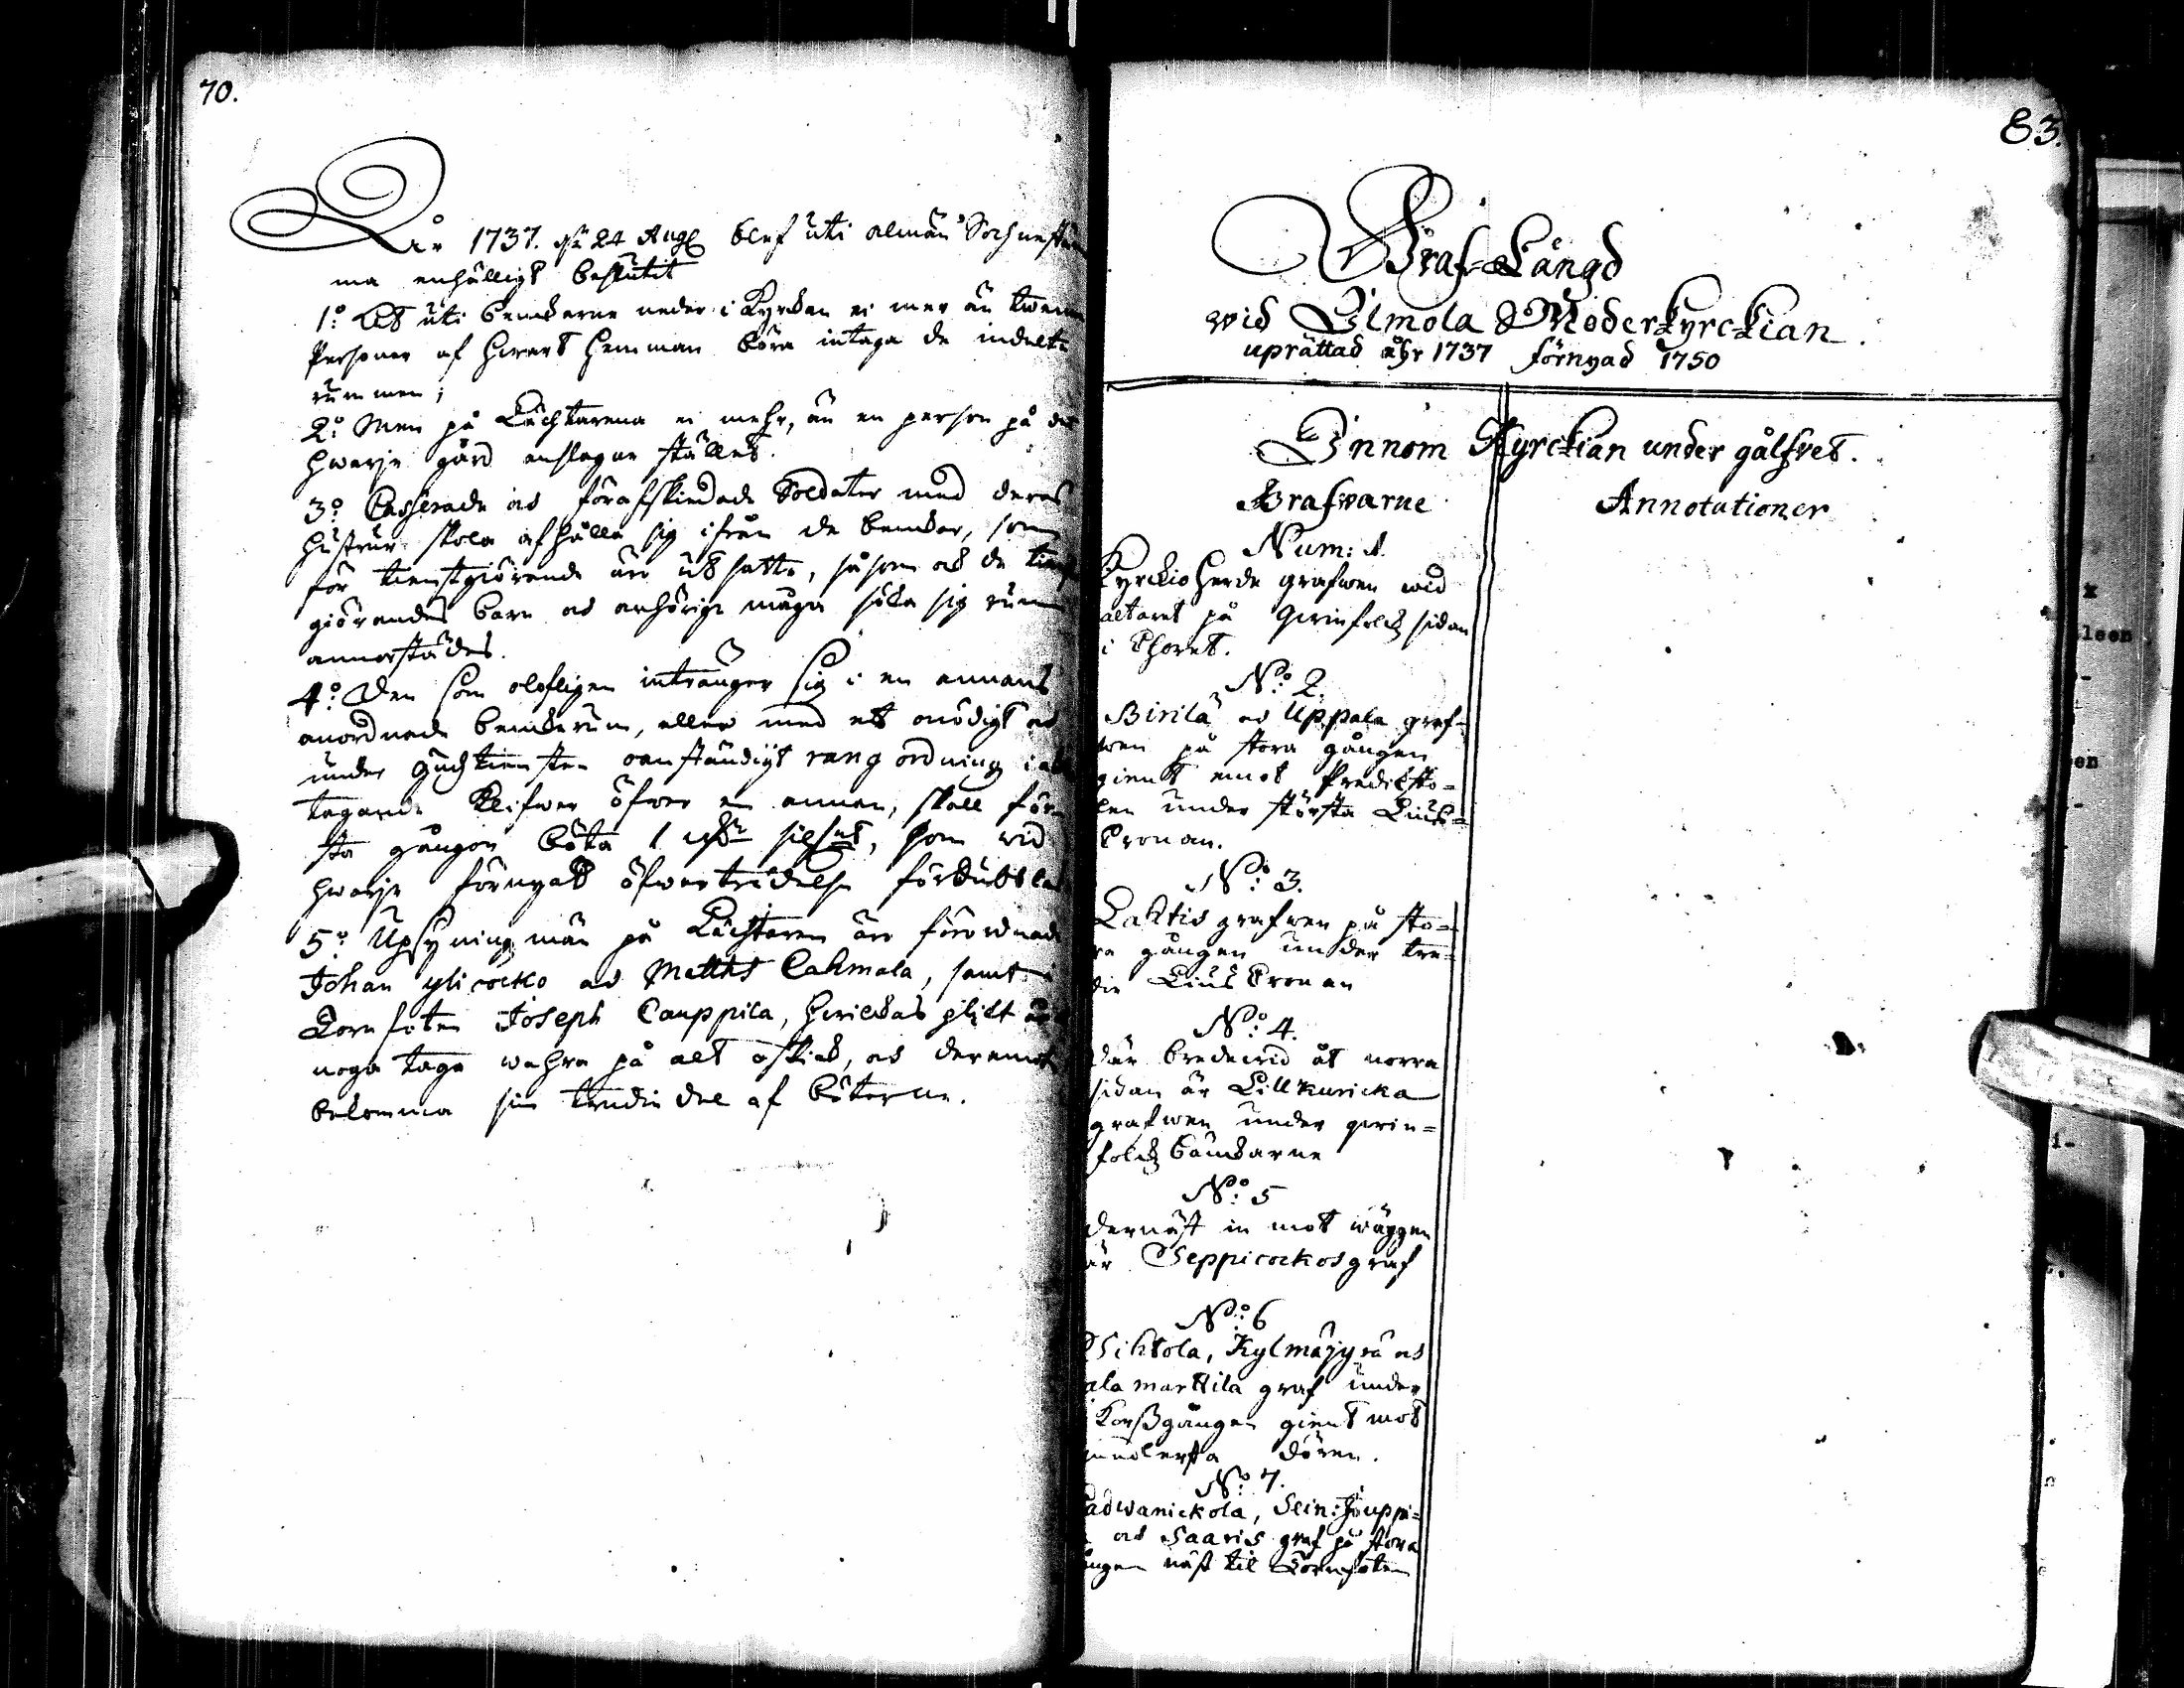 70.
År 1737. d. 24 Aug blef uti almän Sochnestäm
ma enhälligt beslutit
1:o At uti benckarne neder i Kyrckan ei mer än twenne
Personer af hwart hemman böra intaga de indelte
rummen;
2:o Men på Lächtarena ei mehr, än en person på det
hwarje gård anslagne stället.
3:o Casserade och förafskiedade Soldater med deras
hustrur skola afhålla sig ifrån de benckar, som
för tienstgiörande äro utsatte, såsom ock de tienst
giörandes barn och anhörige måga söka sig rum
annorstädes.
4:o Den som olofligen intränger sig i en annans
anordnade benckerum, eller med ett onödigt och
under Gudstiensten oanständigt rang ordning i
tagande klifwer öfwer en annan, skall för-
sta gången böta 1 dr silfmt, som wid
hwarje förnyat öfwerträdelse fördubblas
5:o Upsyningzmän på Lächtaren äro förordnade
Johan ylicocko och Matths Cahmala, samt i
Tornfoten Joseph Cauppila, hwilckas plickt är
noga taga wahra på alt oskick, och deremot
bekomma sin tredie del af böterne.
83.
Graf-Längd
wid Ilmola Moderkyrckian
uprättad åhr 1737 förnyad 1750
Innom Kyrckian under gålfvet.
Grafwarne Annotationer
Num: 1.
Kyrckioherde grafwen wid
altaret på Qwinfolckz sidan
i Choret.
N:o 2.
Birilä och Uppala graf-
wen på stora gången
gient emot Predicksto-
len under största Lius-
Cronan.
N:o 3.
Lahtis grafwen på sto-
ra gången under tre-
die Lius Cronan
N:o 4.
där bredewid åt norra
sidan är Lillkuricka
grafwen under qwin-
folckz bänckarne
N:o 5
dernäst in mot wäggen
är Seppicockos graf
N:o 6
Sihtola, Kylmäjyrä och
ala marttila graf under
Korßgången gient mot
medlersta dören.
N:o 7.
adwanickola, Sein: Jouppi-
och Saaris graf på stora
ången näst til Tornfoten